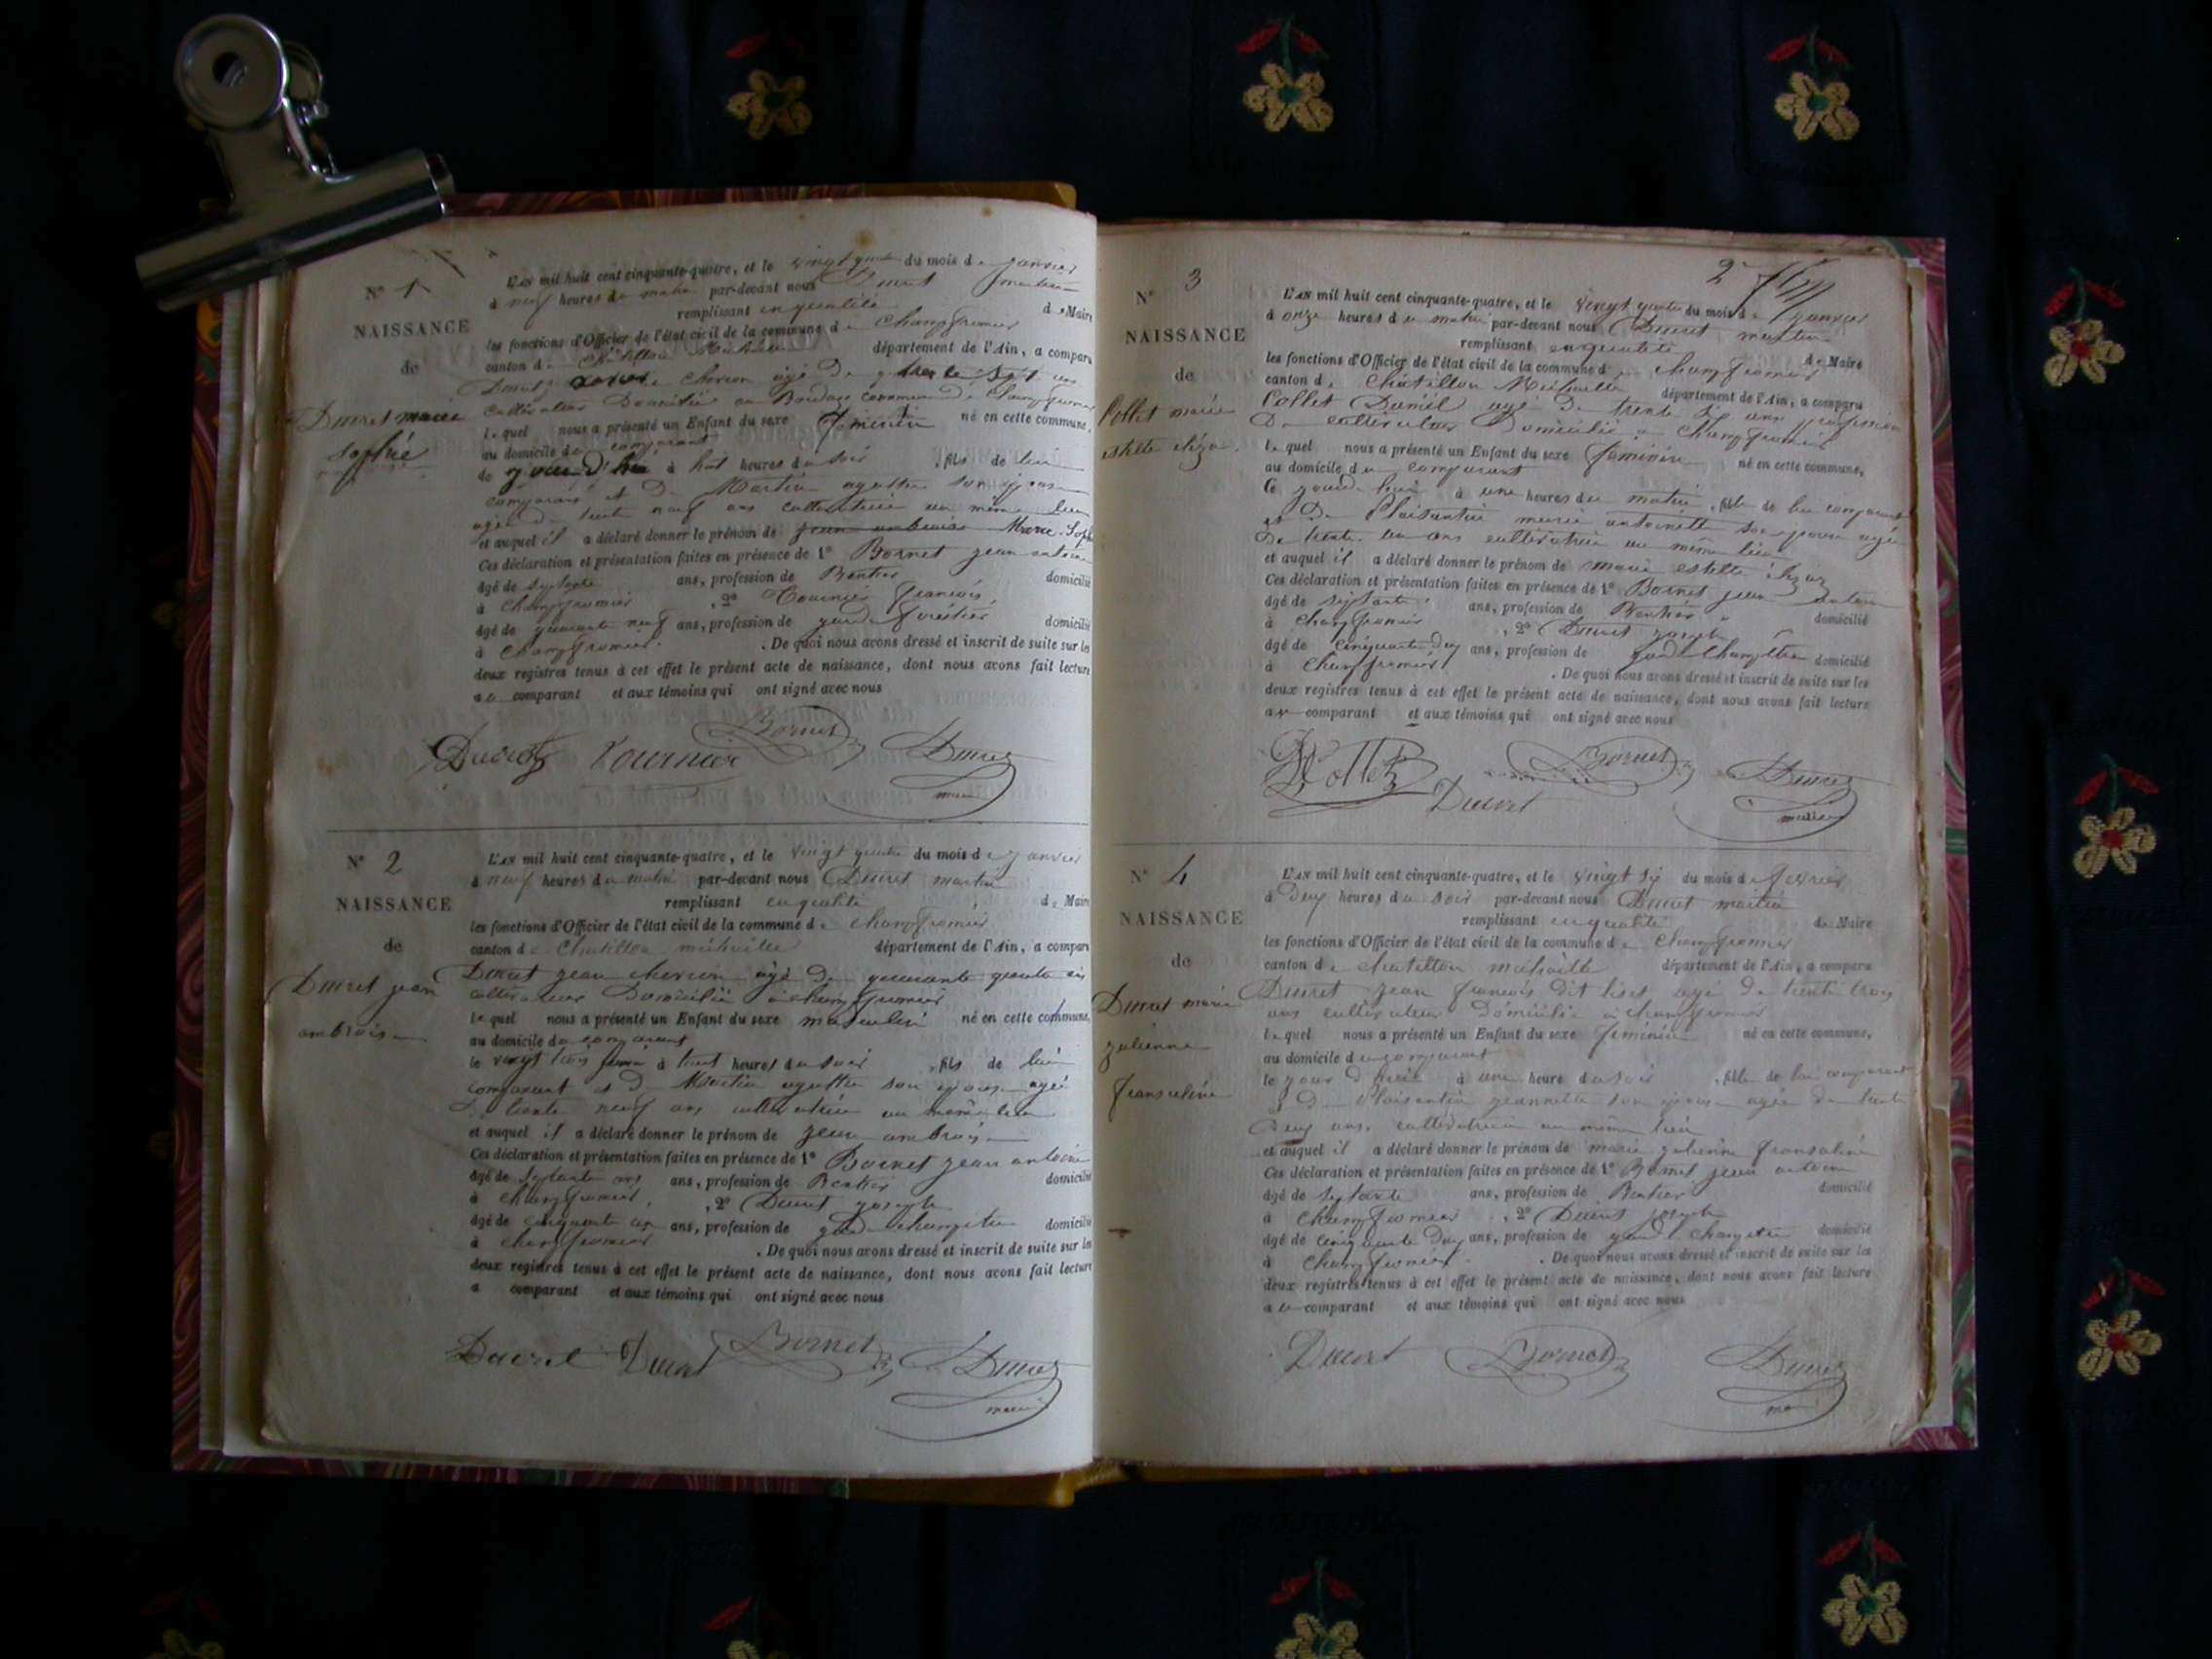 N° 1
NAISSANCE
de
Ducret marie
Sophie
L'AN mil huit cent cinquante-quatre, et le vingt quatre du mois de janvier
à neuf heures du matin par-devant nous Ducret martin
remplissant en qualité de Maire
les fonctions d'Officier de l'état civil de la commune de Champfromier
canton de Châtillon Michaille département de l'Ain, a comparu
Ducret chevron âgé de
cultivateur Domicilié au commune de Champfromier
lequel nous a présenté un Enfant du sexe féminin né en cette commune,
au domicile du comparant
de à huit heures du soir , fils de lui
comparant et de Martin agathe son épouse
âgée de trente neuf ans cultivatrice au même lieu
et auquel il a déclaré donner le prénom de jean ambroise Marie Sophie
Ces déclaration et présentation faites en présence de 1° Bornet jean antoine
âgé de septante ans, profession de Rentier domicilié
à Champfromier , 2° Tournier françois
âgé de quarante neuf ans, profession de garde forestier domicilié
à Champfromier . De quoi nous avons dressé et inscrit de suite sur les
deux registres tenus à cet effet le présent acte de naissance, dont nous avons fait lecture
au comparant et aux témoins qui ont signé avec nous
Ducret Tournier Bornet Ducret
maire
N° 2
NAISSANCE
de
Ducret jean
ambroise
L'AN mil huit cent cinquante-quatre, et le vingt quatre du mois de janvier
à neuf heures du matin par-devant nous Ducret martin
remplissant en qualité de Maire
les fonctions d'Officier de l'état civil de la commune de Champfromier
canton de Chatillon michaille département de l'Ain, a comparu
Ducret jean chevron âgé de quarante
cultivateur Domicilié à champfromier
lequel nous a présenté un Enfant du sexe masculin né en cette commune,
au domicile du comparant
le vingt trois à huit heures du soir , fils de lui
comparant et de Martin agathe son épouse agée
de trente neuf ans cultivatrice au même lieu
et auquel il a déclaré donner le prénom de jean ambroise
Ces déclaration et présentation faites en présence de 1° Bornet jean antoine
âgé de septante ans ans, profession de Rentier domicilié
à Champfromier , 2° Ducret joseph
âgé de cinquante ans, profession de garde champêtre domicilié
à champfromier . De quoi nous avons dressé et inscrit de suite sur les
deux registres tenus à cet effet le présent acte de naissance, dont nous avons fait lecture
a comparant et aux témoins qui ont signé avec nous
Ducret Ducret Bornet Ducret
maire
2
N° 3
NAISSANCE
de
Collet marie
estelle
L'AN mil huit cent cinquante-quatre, et le vingt quatre du mois de janvier
à onze heures du matin par-devant nous Ducret martin
remplissant en qualité de Maire
les fonctions d'Officier de l'état civil de la commune de champfromier
canton de Châtillon Michaille département de l'Ain, a comparu
Collet Daniel agé de trente ans profession
De cultivateur Domicilié à Champfromier
lequel nous a présenté un Enfant du sexe féminin né en cette commune,
au domicile du comparant
Ce jourd'hui à une heures du matin , fille de lui comparant
et de Plaisantin marie antoinette son épouse agée
de trente un ans cultivatrice au même lieu
et auquel il a déclaré donner le prénom de marie estelle
Ces déclaration et présentation faites en présence de 1° Bornet jean antoine
âgé de septante ans, profession de Rentier domicilié
à Champfromier , 2° Ducret joseph
âgé de cinquante deux ans, profession de garde champêtre domicilié
à Champfromier . De quoi nous avons dressé et inscrit de suite sur les
deux registres tenus à cet effet le présent acte de naissance, dont nous avons fait lecture
au comparant et aux témoins qui ont signé avec nous
Collet Bornet Ducret
Ducret maire
N° 4
NAISSANCE
de
Ducret marie
julienne
L'AN mil huit cent cinquante-quatre, et le vingt six du mois de fevrier
à deux heures du soir par-devant nous Ducret martin
remplissant en qualité de Maire
les fonctions d'Officier de l'état civil de la commune de Champfromier
canton de chatillon michaille département de l'Ain, a comparu
Ducret jean françois dit agé de trente trois
ans cultivateur Domicilié à champfromier
lequel nous a présenté un Enfant du sexe féminin né en cette commune,
au domicile du comparant
le jour d'hui à une heure du soir , fille de lui comparant
et de Plaisantin jeannette son épouse agée de trente
deux ans, cultivatrice au même lieu
et auquel il a déclaré donner le prénom de marie julienne
Ces déclaration et présentation faites en présence de 1° Bornet jean antoine
âgé de septante ans, profession de Rentier domicilié
à Champfromier , 2° Ducret joseph
âgé de cinquante deux ans, profession de garde champêtre domicilié
à Champfromier . De quoi nous avons dressé et inscrit de suite sur les
deux registres tenus à cet effet le présent acte de naissance, dont nous avons fait lecture
au comparant et aux témoins qui ont signé avec nous
Ducret Bornet Ducret